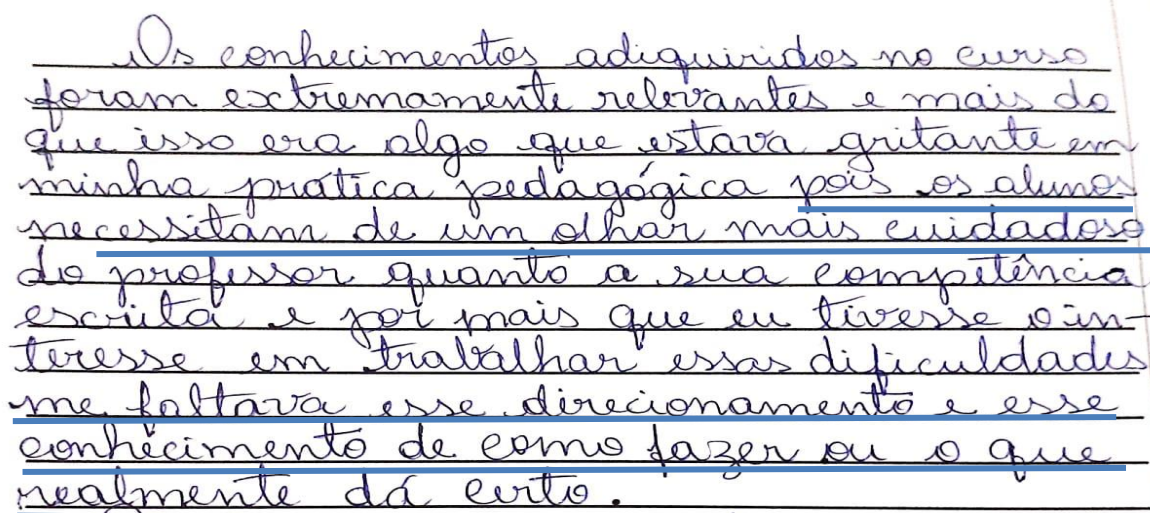 Os conhecimentos adiquiridos no curso
foram extremamente relevantes e mais do
que isso era algo que estava gritante em
minha prática pedagógica pois os alunos
necessitam de um olhar mais cuidadoso
do professor quanto a sua competência
escrita e por mais que eu tivesse o in-
teresse em trabalhar essas dificuldades
me faltava esse direcionamento e esse
conhecimento de como fazer ou o que
realmente dá certo.